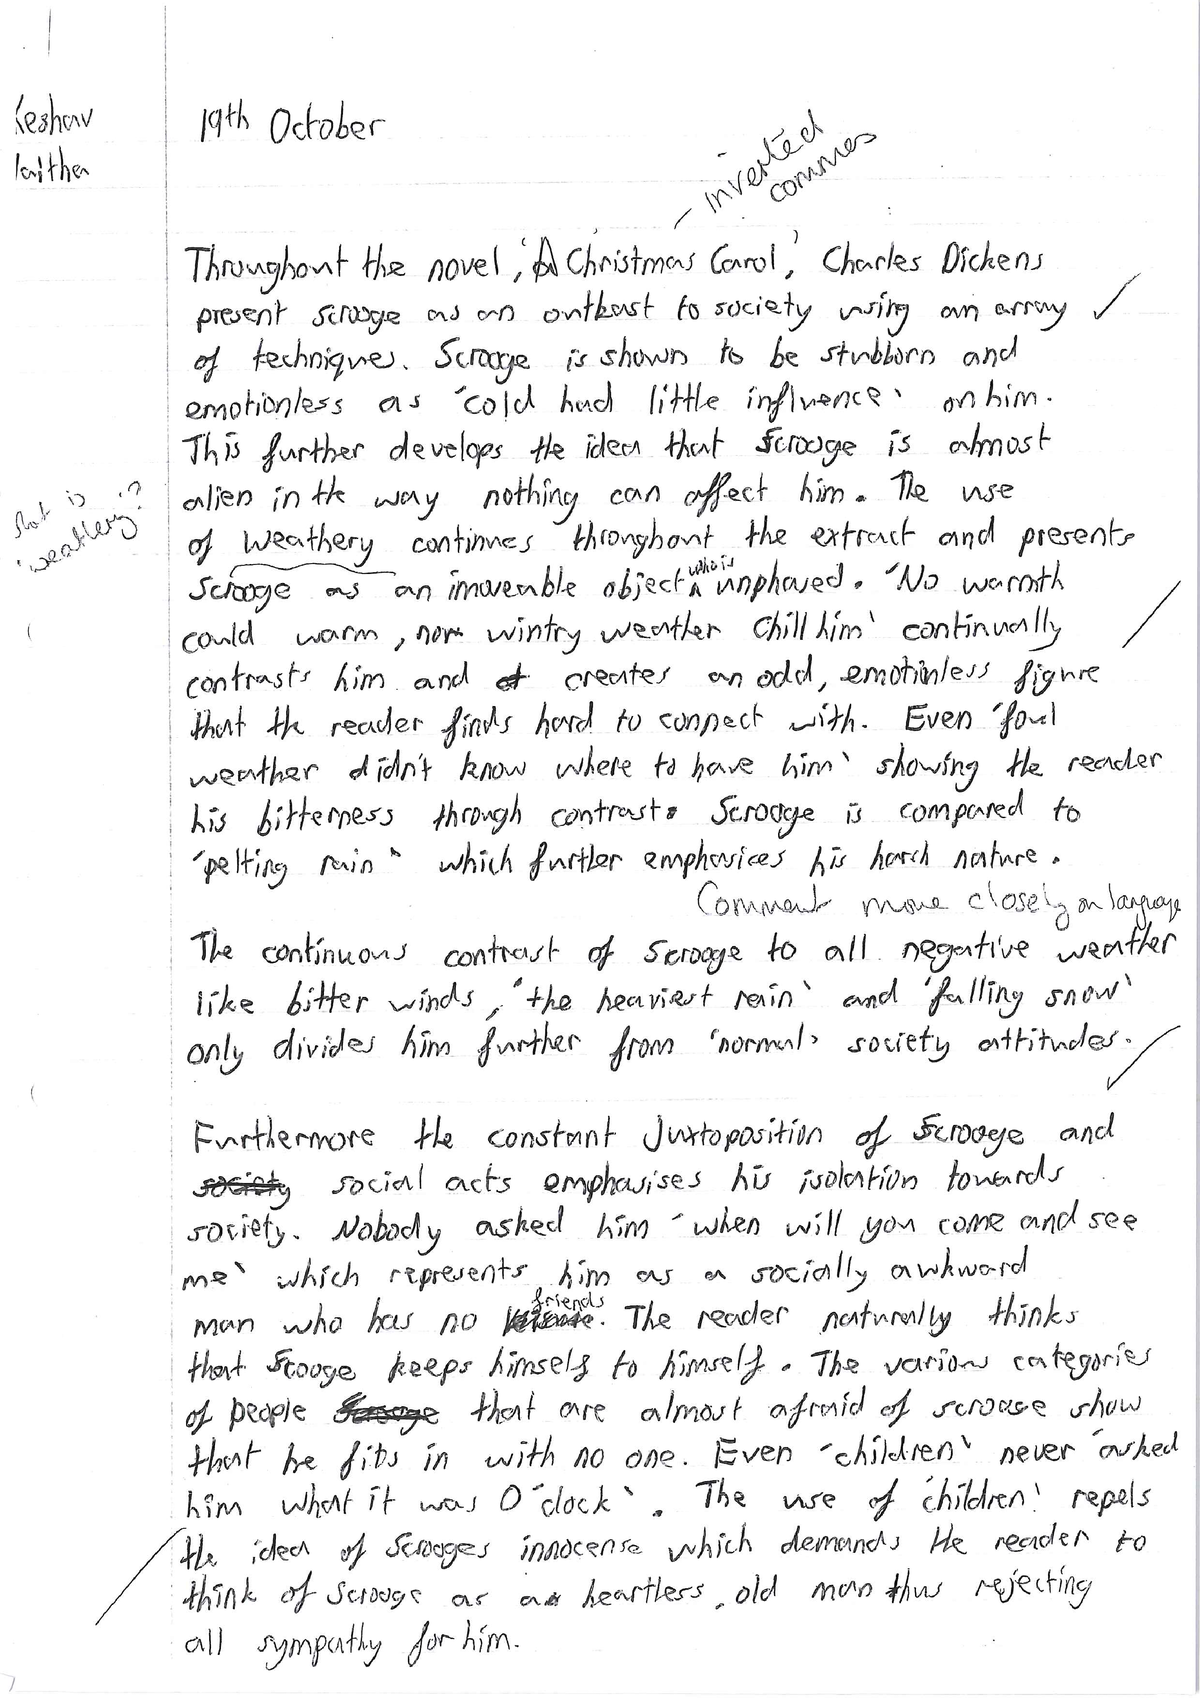 Keshav
19th October
inverted
commas
Throughout the novel, 'A Christmas Carol,' Charles Dickens
present scrooge as an outkast to society using an array
of techniques. Scrooge is shown to be stubborn and
emotionless as 'cold had little influence' on him.
This further develops the idea that Scrooge is almost
alien in the way nothing can affect him. The use
of weathery continues throughout the extract and presents
what is
'weathery'?
Scrooge as an imoveable object who is unphased. 'No warmth
could warm, nor wintry weather chill him' continually
contrasts him and creates an odd, emotinless figure
that the reader finds hard to connect with. Even 'foul
weather didn't know where to have him' showing the reader
his bitterness through contrast. Scrooge is compared to
'pelting rain' which further emphasices his harch nature.
Comment more closely on language
The continuous contrast of Scrooge to all negative weather
like bitter winds, 'the heaviest rain' and 'falling snow'
only divides him further from 'normal' society attitudes.
Furthermore the constant Juxtoposition of Scrooge and
society social acts emphasises his isolation towards
society. Nobody asked him 'when will you come and see
me' which represents him as a socially awkward
man who has no friends. The reader naturally thinks
that Scooge keeps himself to himself. The various categories
of people that are almost afraid of scrooge show
that he fits in with no one. Even 'children' never 'asked
him what it was O'clock'. The use of 'children' repels
the idea of Scrooges innocense which demands the reader to
think of Scrooge as a heartless, old man thus rejecting
all sympathy for him.